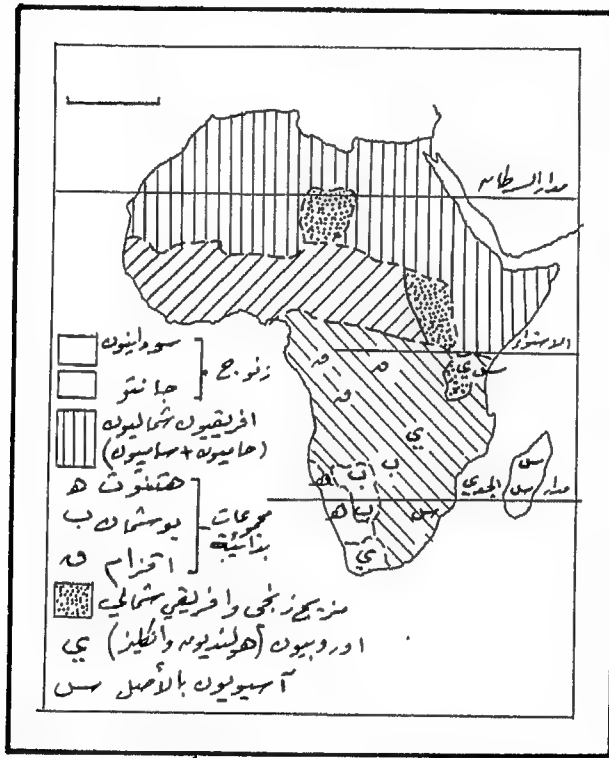 مدار السرطان
الاستواء
س ي
ق
ق
ق
ي
ب
ب
ب
ه
ه
س
ي
س
س
مدار الجدي
سودانيون
جانتو
زنوج
افريقيون شماليون
(حاميون + ساميون)
هتنوت ه
بوشمان ب
اقزام ق
مجموعات
بدائية
مزيج زنجي وافريقي شمالي
اوروبيون (هولنديون وانكليز) ي
آسيويون بالأصل س